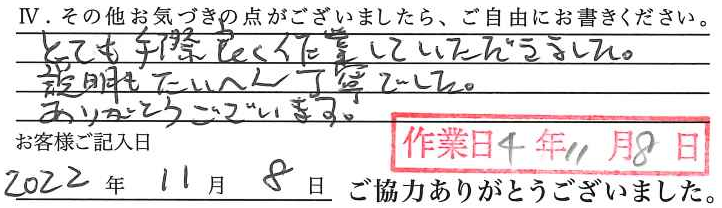 Ⅳ. その他お気づきの点がございましたら、ご自由にお書きください。
とても手際良く作業していただきました。
説明もたいへん丁寧でした。
ありがとうございます。
お客様ご記入日
作業日4年11月8日
2022年11月8日 ご協力ありがとうございました。